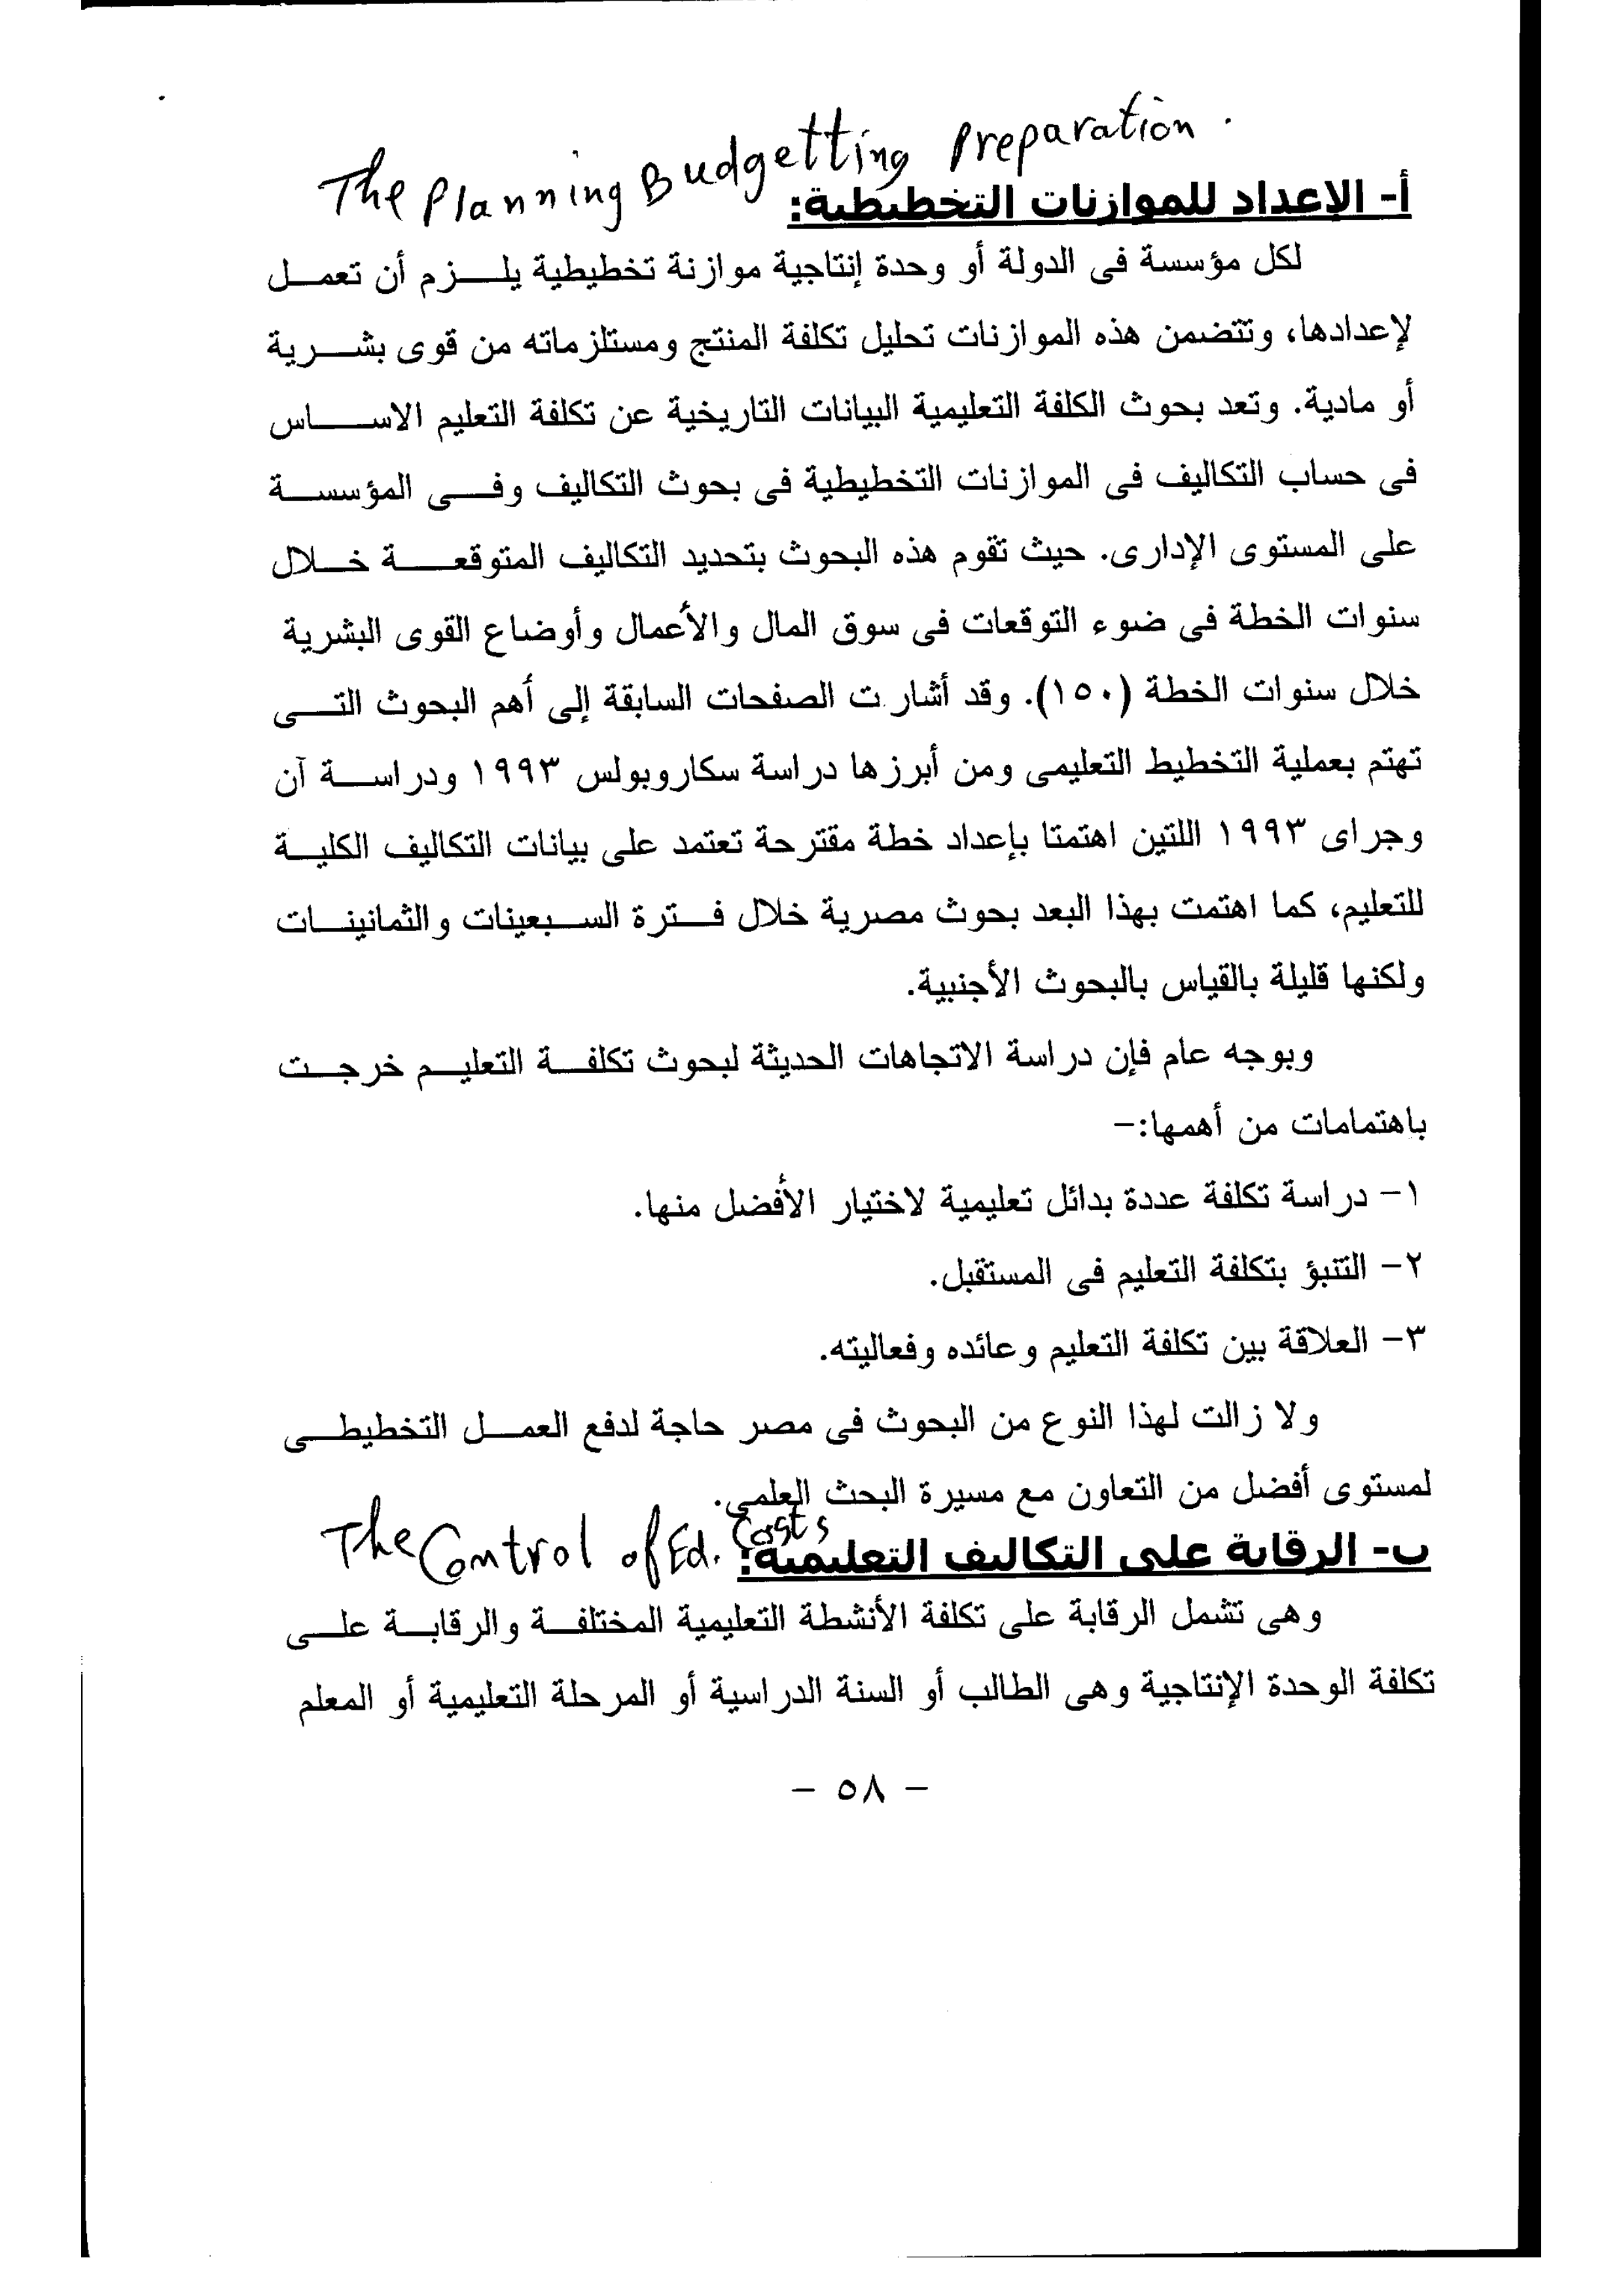 The Planning Budgetting Preparation.
أ- الإعداد للموازنات التخطيطية:
لكل مؤسسة فى الدولة أو وحدة إنتاجية موازنة تخطيطية يلزم أن تعمل
لإعدادها، وتتضمن هذه الموازنات تحليل تكلفة المنتج ومستلزماته من قوى بشرية
أو مادية. وتعد بحوث الكلفة التعليمية البيانات التاريخية عن تكلفة التعليم الاساس
فى حساب التكاليف فى الموازنات التخطيطية فى بحوث التكاليف وفى المؤسسة
على المستوى الإدارى. حيث تقوم هذه البحوث بتحديد التكاليف المتوقعة خلال
سنوات الخطة فى ضوء التوقعات فى سوق المال والأعمال وأوضاع القوى البشرية
خلال سنوات الخطة (١٥٠). وقد أشارت الصفحات السابقة إلى أهم البحوث التى
تهتم بعملية التخطيط التعليمى ومن أبرزها دراسة سكاروبولس ١٩٩٣ ودراسة آن
وجراى ١٩٩٣ اللتين اهتمتا بإعداد خطة مقترحة تعتمد على بيانات التكاليف الكلية
للتعليم، كما اهتمت بهذا البعد بحوث مصرية خلال فترة السبعينات والثمانينات
ولكنها قليلة بالقياس بالبحوث الأجنبية.
وبوجه عام فإن دراسة الاتجاهات الحديثة لبحوث تكلفة التعليم خرجت
باهتمامات من أهمها:-
١- دراسة تكلفة عددة بدائل تعليمية لاختيار الأفضل منها.
٢- التنبؤ بتكلفة التعليم فى المستقبل.
٣- العلاقة بين تكلفة التعليم وعائده وفعاليته.
ولا زالت لهذا النوع من البحوث فى مصر حاجة لدفع العمل التخطيطى
لمستوى أفضل من التعاون مع مسيرة البحث العلمى.
The Control of Ed. Costs
ب- الرقابة على التكاليف التعليمية:
وهى تشمل الرقابة على تكلفة الأنشطة التعليمية المختلفة والرقابة على
تكلفة الوحدة الإنتاجية وهى الطالب أو السنة الدراسية أو المرحلة التعليمية أو المعلم
- ٥٨ -